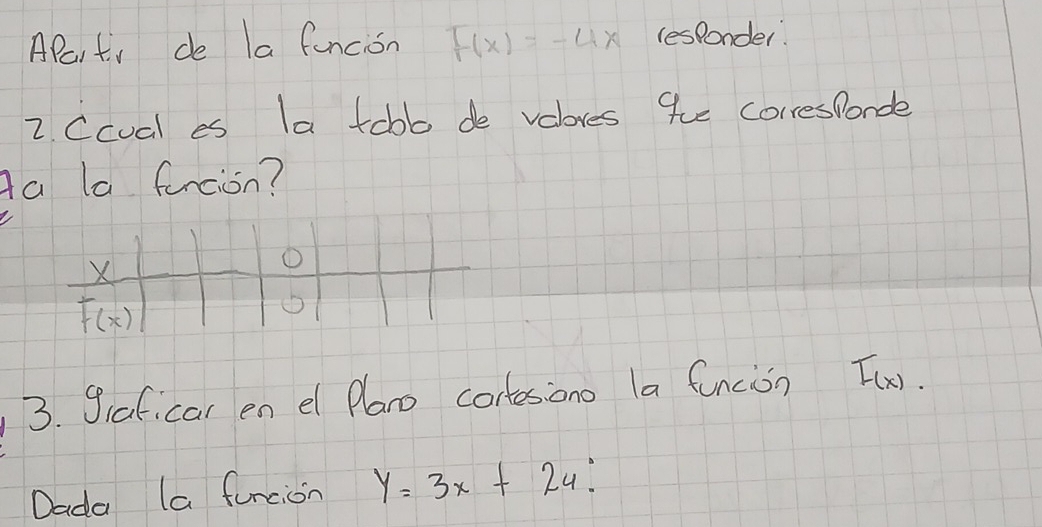 APartir de la función F(x) = -4x resPonder:
2. ¿cual es la tabla de valores que corresPonde
a la función?
x 0
F(x) 0
3. graficar en el Plano cartesiano la función F(x).
Dada la función Y = 3x + 24: